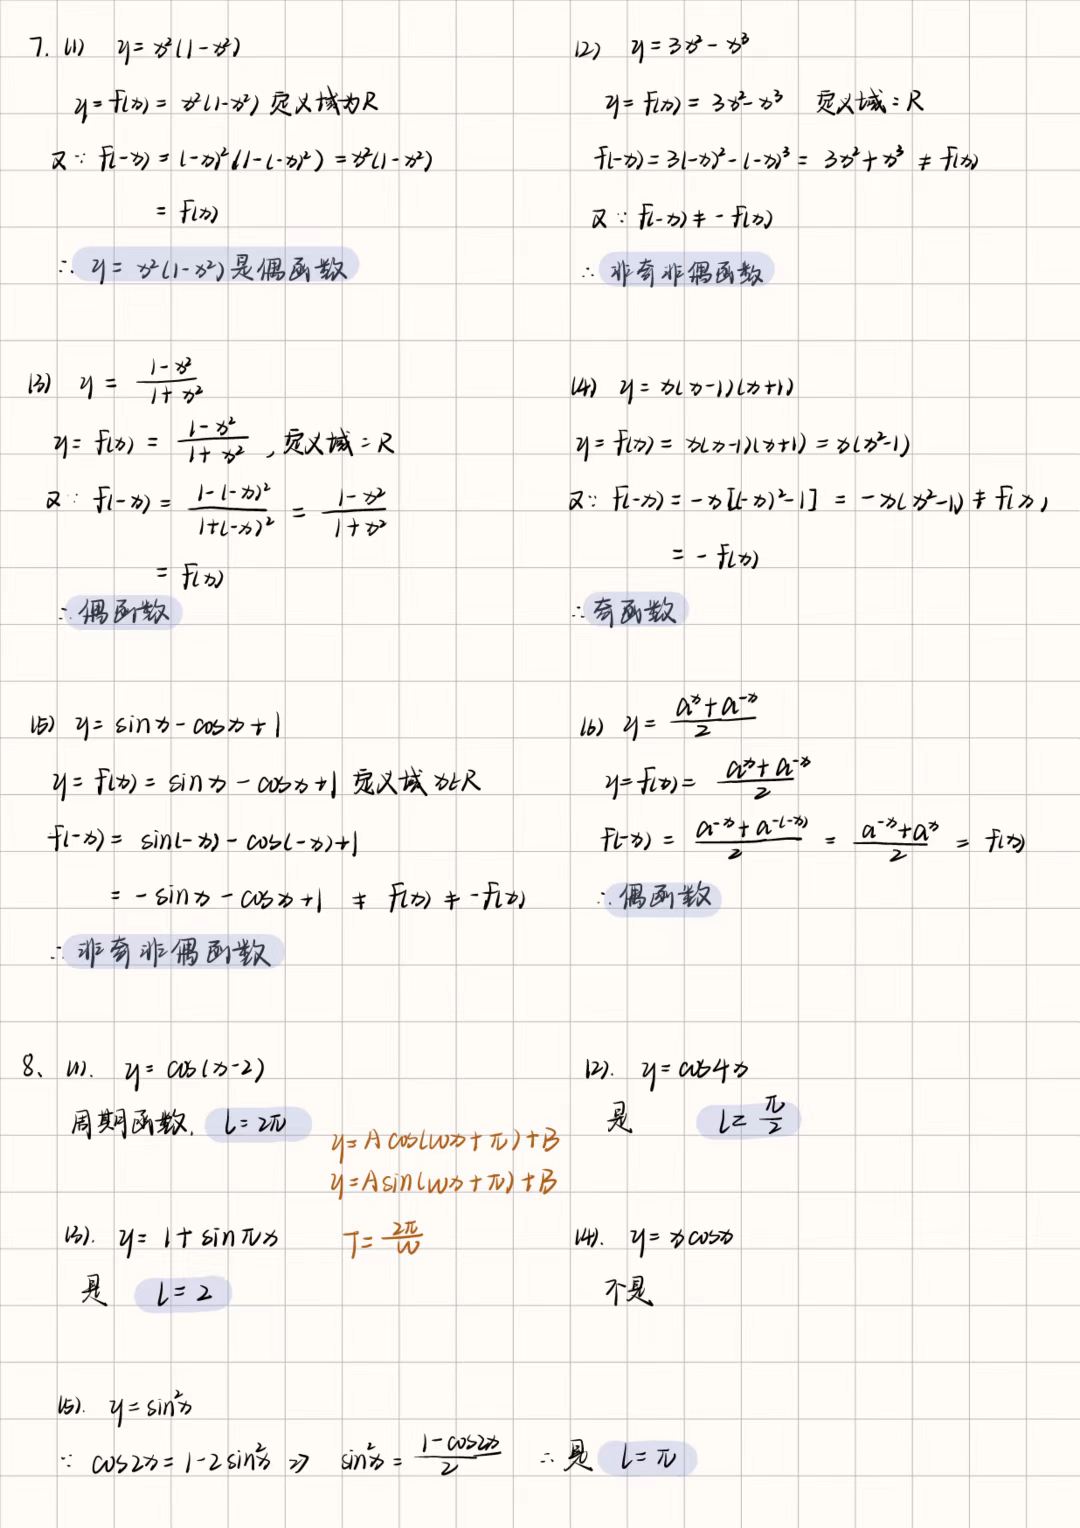 7. (1) y = x²(1-x²)
y = f(x) = x²(1-x²) 定义域为R
又∵ f(-x) = (-x)²(1-(-x)²) = x²(1-x²)
= f(x)
∴ y = x²(1-x²) 是偶函数
(2) y = 3x² - x³
y = f(x) = 3x² - x³ 定义域: R
f(-x) = 3(-x)² - (-x)³ = 3x² + x³ ≠ f(x)
又∵ f(-x) ≠ -f(x)
∴ 非奇非偶函数
(3) y = \frac{1-x²}{1+x²}
y = f(x) = \frac{1-x²}{1+x²}, 定义域: R
又∵ f(-x) = \frac{1-(-x)²}{1+(-x)²} = \frac{1-x²}{1+x²}
= f(x)
∴ 偶函数
(4) y = x(x-1)(x+1)
y = f(x) = x(x-1)(x+1) = x(x²-1)
又∵ f(-x) = -x[(-x)²-1] = -x(x²-1) ≠ f(x)
= -f(x)
∴ 奇函数
(5) y = sinx - cosx + 1
y = f(x) = sinx - cosx + 1 定义域 x∈R
f(-x) = sin(-x) - cos(-x) + 1
= -sinx - cosx + 1 ≠ f(x) ≠ -f(x)
∴ 非奇非偶函数
(6) y = \frac{a^x + a^{-x}}{2}
y = f(x) = \frac{a^x + a^{-x}}{2}
f(-x) = \frac{a^{-x} + a^{-(-x)}}{2} = \frac{a^{-x} + a^x}{2} = f(x)
∴ 偶函数
8、(1). y = cos(x-2)
周期函数. l = 2π
y = A cos(wx+π)+B
y = A sin(wx+π)+B
T = \frac{2π}{w}
(2). y = cos4x
是 l = \frac{π}{2}
(3). y = 1 + sinπx
是 l = 2
(4). y = xcosx
不是
(5). y = sin²x
∵ cos2x = 1-2sin²x ⇒ sin²x = \frac{1-cos2x}{2} ∴ 是 l = π